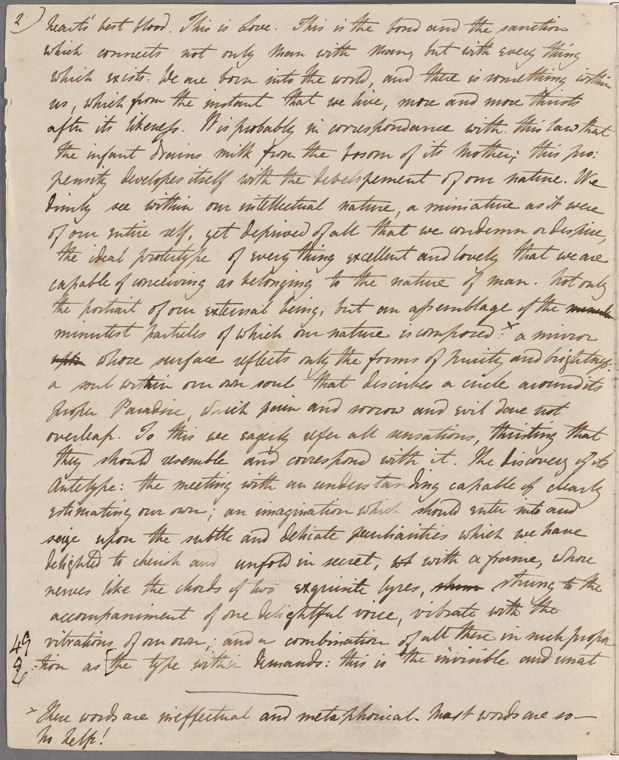 2)
hearts' best blood. This is Love. This is the bond and the sanction
which connects not only man with man, but with every thing
which exists. We are born into the world, and there is something within
us, which from the instant that we live, more and more thirsts
after its likeness. It is probably in correspondance with this law that
the infant drains milk from the bosom of its Mother; this pro:
pensity developes itself with the developement of our nature. We
dimly see within our intellectual nature, a miniature as it were
of our entire self, yet deprived of all that we condemn or despise,
the ideal prototype of every thing excellent and lovely that we are
capable of conceiving as belonging to the nature of man. Not only
the portrait of our external being, but an assemblage of the
minutest particles of which our nature is composed: x a mirror
whose surface reflects only the forms of purity and brightness:
a soul within our own soul that describes a circle around its
proper Paradise, which pain and sorrow and evil dare not
overleap. To this we eagerly refer all sensations, thirsting that
they should resemble and correspond with it. The discovery of its
Antetype: the meeting with an understanding capable of clearly
estimating our own; an imagination which should enter into and
seize upon the subtle and delicate peculiarities which we have
delighted to cherish and unfold in secret, with a frame, whose
nerves like the chords of two exquisite lyres, strung to the
accompaniment of one delightful voice, vibrate with the
vibrations of our own; and a combination of all these in such propor
:tion as [the type within demands: this is the invisible and unat
49
2
x These words are ineffectual and metaphorical. Most words are so—
No help!